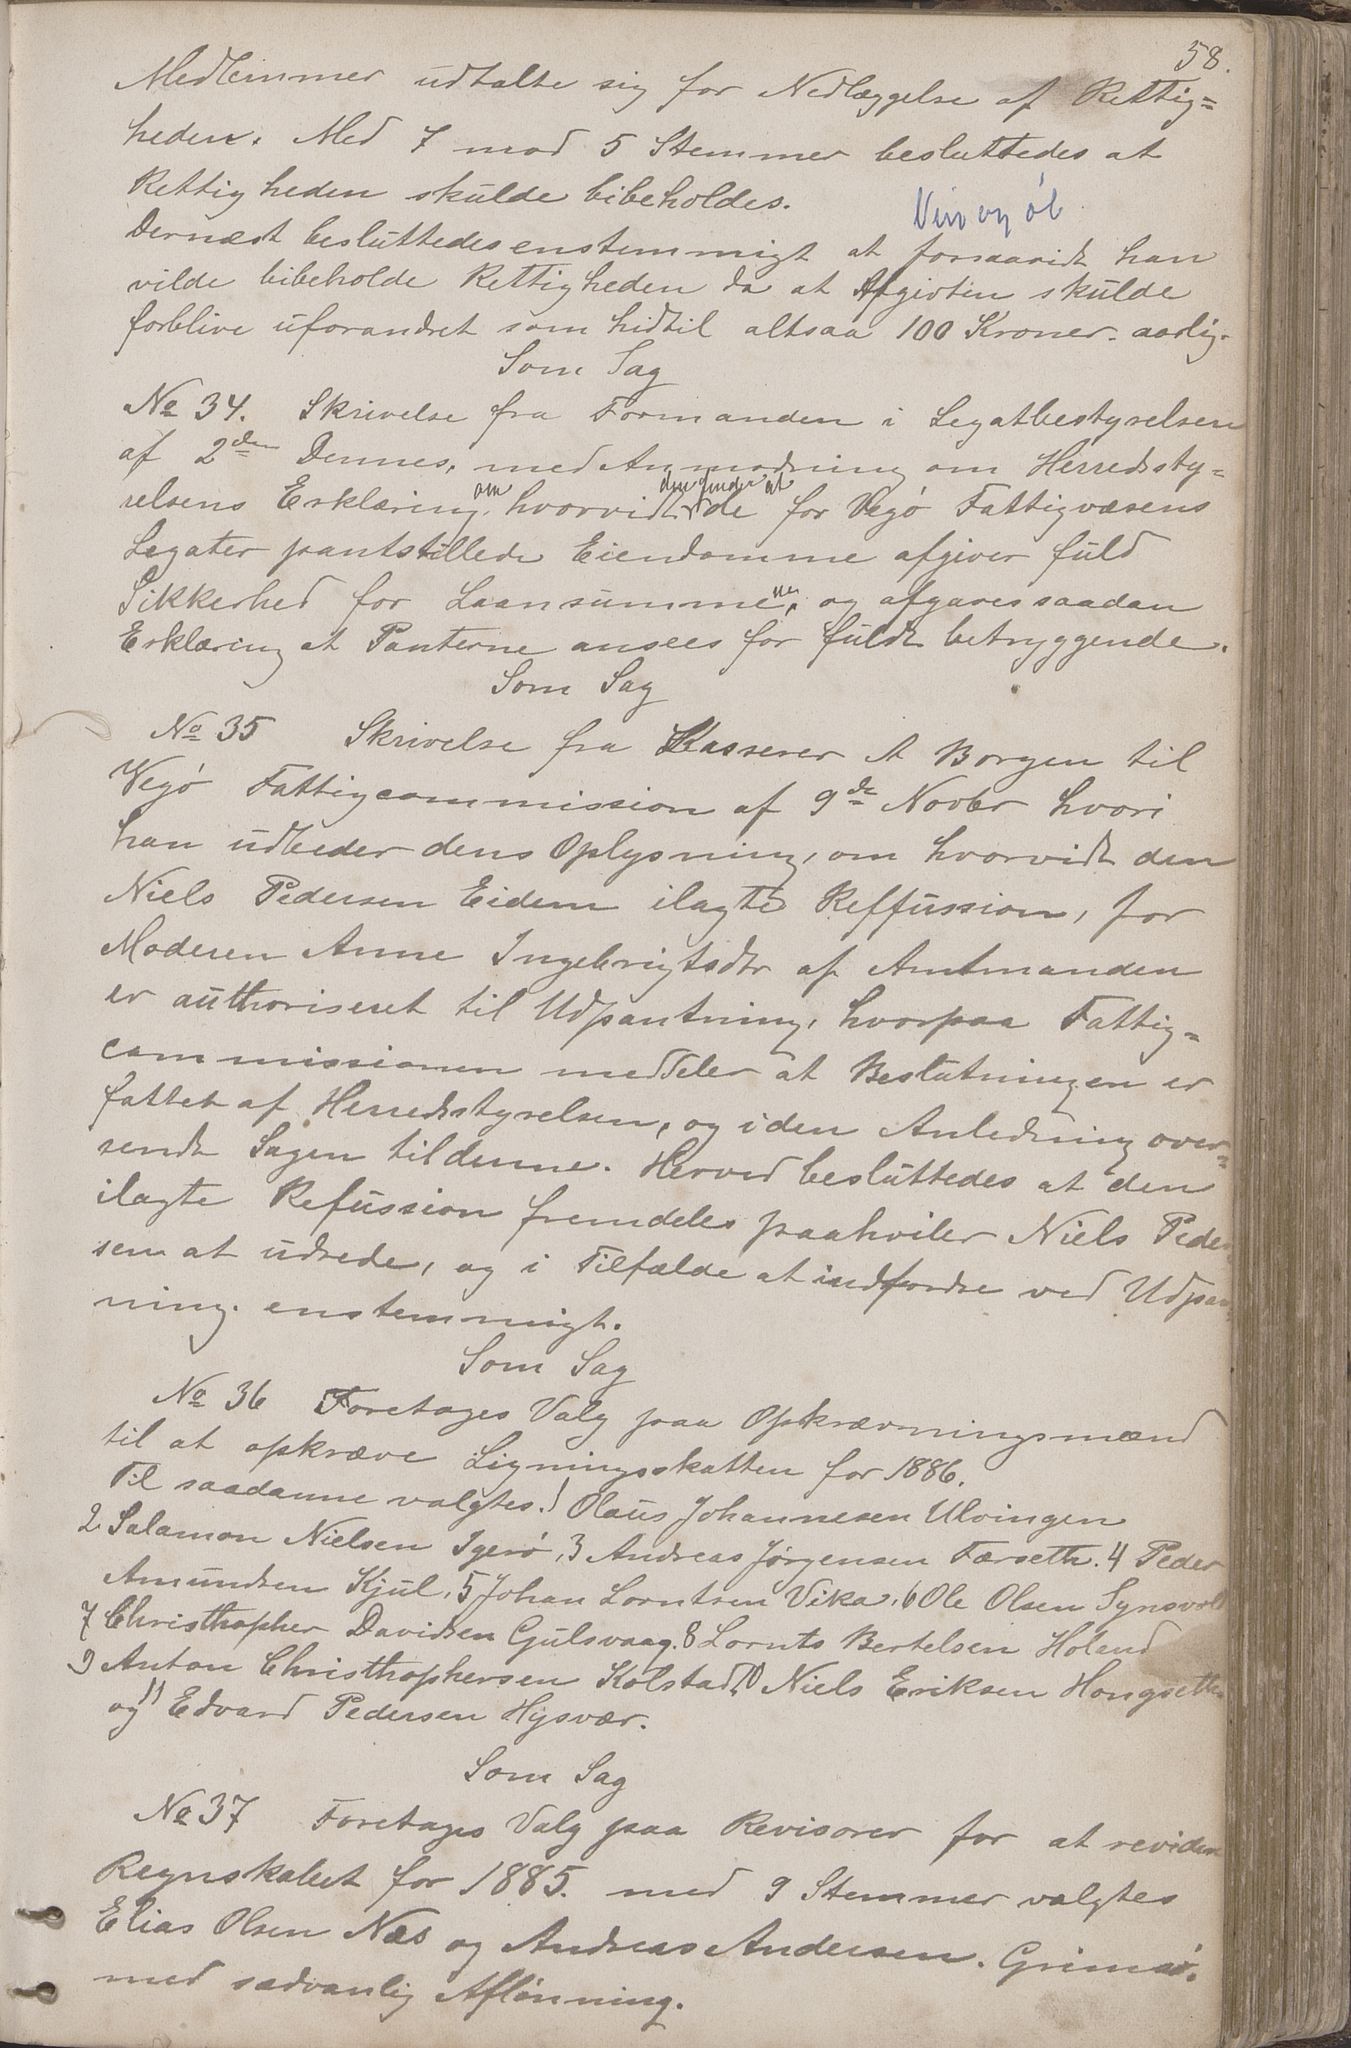 58.
Medlemmer udtalte sig for Nedlæggelse af Rettig=
heden. Med 7 mod 5 Stemmer besluttedes at
Rettigheden skulde bibeholdes.
Vin og øl
Dernæst besluttedes enstemmigt at forsaavidt han
vilde bibeholde Rettigheden da at Afgivten skulde
forblive uforandret som hidtil altsaa 100 Kroner. aarlig.
Som Sag
No 34. Skrivelse fra Formanden i Legatbestyrelsen
af 2den Dennes, med Anmodning om Herredssty=
relsens Erklæring, om hvorvidt den finder at de for Vegø Fattigvæsens
Legater pantstillede Eiendomme afgiver fuld
Sikkerhed for Laansummerne, og afgaves saadan
Erklæring at Panterne ansees for fuldt betryggende.
Som Sag
No 35 Skrivelse fra Kasserer A Borgen til
Vegø Fattigcommission af 9de Novbr hvori
han udbeder dens Oplysning, om hvorvidt den
Niels Pedersen Eidem ilagte Reffussion, for
Moderen Anne Ingebrigtsdtr af Amtmanden
er authoriseret til Udpantning, hvorpaa Fattig=
commissionen meddeler at Beslutningen er
fattet af Herredsstyrelsen, og i den Anledning over=
sendt Sagen til denne. Herved besluttedes at den
ilagte Refussion fremdeles paahviler Niels Peder
sen at udrede, og i Tilfælde at indfordre ved Udpan
ning. enstemmigt.
Som Sag
No 36 Foretages Valg paa Opkrævningsmænd
til at opkræve Ligningsskatten for 1886.
Til saadanne valgtes. 1 Olaus Johannesen Ulvingen
2 Salamon Nielsen Igerø, 3 Andreas Jørgensen Færseth. 4 Peder
Amundsen Kjul, 5 Johan Lorntsen Vika, 6 Ole Olsen Synsvold
7 Christhopher Davidsen Gulsvaag. 8 Lornts Bertelsen Holand
9 Anton Christhophersen Kolstad, 10 Niels Eriksen Hongseth
og 11 Edvard Pedersen Hysvær.
Som Sag
No 37 Foretages Valg paa Revisorer for at revidere
Regnskabet for 1885. med 9 Stemmer valgtes
Elias Olsen Næs og Andreas Andersen. Grimsø.
med sædvanlig Aflønning.